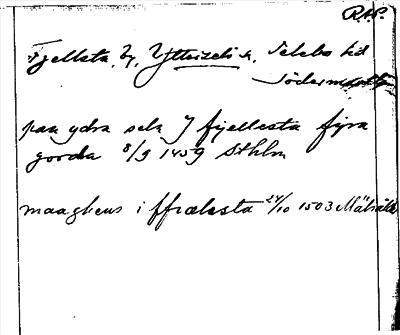 RAP.
Fjellsta, by, Ytterselö sn, Selebo hd
Södermanl
paa ydra sela J fijellesta fijra
gorda 8/9 1459 Sthlm
maaghens i ffiælesta 24/10 1503 Mälsåk